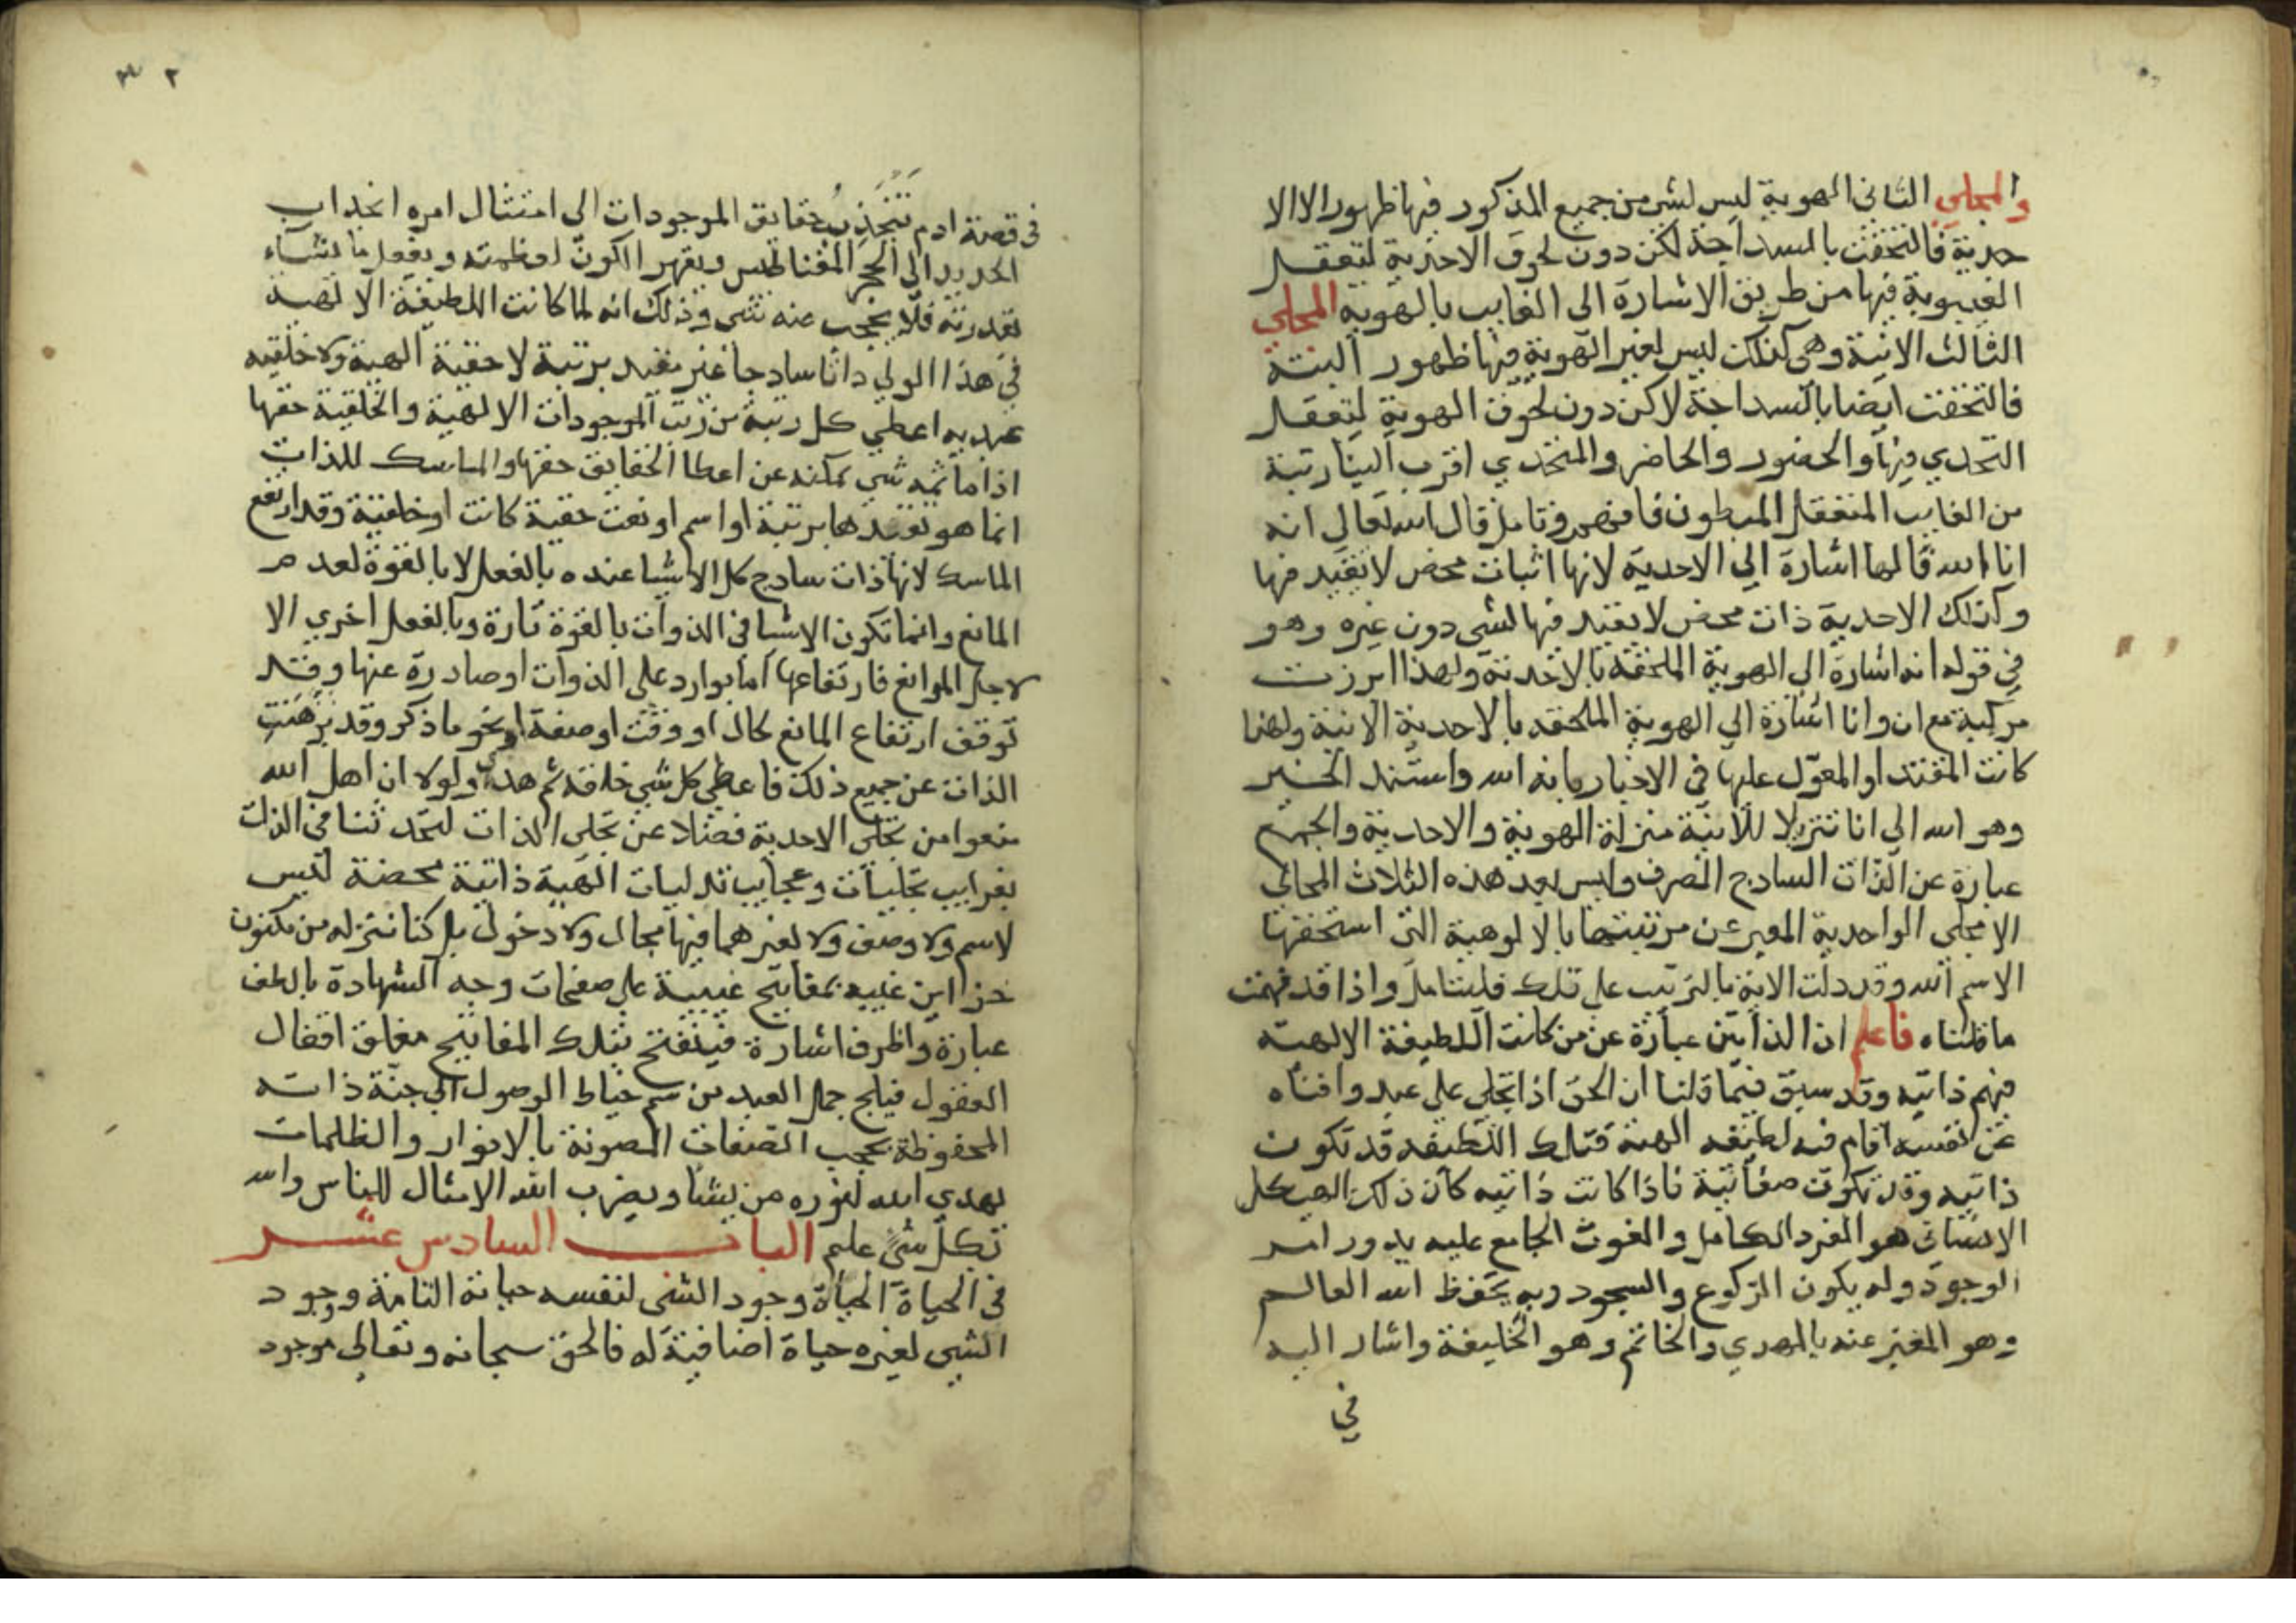 والمجلي الثاني الهوية ليس لشي من جميع المذكور فيها ظهور الا الا
حدية فالتحقت بالسداجة لكن دون لحوق الاحدية لتعقل
الغيبوبة فيها من طريق الاشارة الى الغايب بالهوية المجلي
الثالث الانية وهي كذلك ليس لغير الهوية فيها ظهور البتة
فالتحقت ايضا بالسداجة لاكن دون لحوق الهوية لتعقل
التحدي فيها والحضور والحاضر والمتحدي اقرب الينا رتبة
من الغايب المتعقل المبطون فافهم وتامل قال الله تعالى انه
انا الله قالها اشارة الي الاحدية لانها اثبات محض لا تقيد فيها
وكذلك الاحدية ذات محض لا تقيد فيها لشي دون غيره وهو
في قوله انه اشارة الى الهوية الملحقة بالاحدية ولهذا ابرزت
مركبة مع ان وانا اشارة الي الهوية الملحقه بالاحدية الانية ولهذا
كانت المقتدا والمعول عليها في الاخبار بانه الله واستند الخبر
وهو الله الى انا تنزيلا للانية منزلة الهوية والاحدية والجميع
عبارة عن الذات السادج الصرف وليس بعد هذه الثلاث المجالي
الا مجلي الواحدية المعبر عن مرتبتها بالالوهية التي استحقها
الاسم الله وقد دلت الاية بالترتيب على تلك فليتامل واذا قد فهمت
ما قلناه فاعلم ان الذاتين عبارة عن من كانت اللطيفة الالهية
فيهم ذاتيه وقد سبق فيما قلنا ان الحق اذا تجلي علي عبد وافناه
عن نفسه اقام فيه لطيفه الهية فتلك اللطيفه قد تكون
ذاتيه وقد تكون صفاتية فاذا كانت ذاتيه كان ذلك الهيكل
الانساني هو الفرد الكامل والغوث الجامع عليه يدور امر
الوجود وله يكون الركوع والسجود وبه يحفظ الله العالم
وهو المعبر عنه بالمهدي والخاتم وهو الخليفة واشار اليه
في
٣٢
في قصة ادم تنجذب حقايق الموجودات الى امتثال امره انجذاب
الحديد الى الحجر المغناطيس ويقهر الكون بعظمته ويفعل ما يشاء
بقدرته فلا يحجب عنه شي وذلك انه لما كانت اللطيفة الالهية
في هذا الولي ذاتا سادجا غير مقيد برتبة لا حقية الهية ولا خلقيه
عبديه اعطي كل رتبة من رتب الموجودات الالهية والخلقية حقها
اذ ما ثمه شي يمكنه عن اعطا الحقايق حقها والماسك للذات
انما هو تقيدها برتبة او اسم او نعت حقية كانت او خلقية وقد ارتفع
الماسك لانها ذات سادج كل الاشيا عنده بالفعل لا بالقوة لعدم
المانع وانما تكون الاشيا في الذوات بالقوة تارة وبالفعل اخري الا
لاجل الموانع فارتفاعها اما بوارد على الذوات او صادرة عنها وقد
توقف ارتفاع المانع بحال او وقت او صفة او نحو ما ذكر وقد تنزهت
الذات عن جميع ذلك فاعطي كل شي خلقه ثم هدا ولولا ان اهل الله
منعوا من تجلي الاحدية فضلا عن تجلي الذات لتحدثنا في الذات
بغرايب تجليات وعجايب تدليات الهية ذاتية محضة ليس
لاسم ولا وصف ولا لغيرهما فيها مجال ولا دخول بل كنا ننزله من مكنون
خزاين غيبه بمفاتيح غيبية علي صفحات وجه الشهادة بالطف
عبارة واظرف اشارة فينفتح بتلك المفاتيح مغلق اقفال
العقول فيلج جمل العبد من سم خياط الوصول الي جنة ذاته
المحفوظة بحجب الصفات المصونة بالانوار والظلمات
يهدي الله لنوره من يشا ويضرب الله الامثال للناس والله
بكل شي عليم الباب السادس عشر
في الحياة الحياة وجود الشي لنفسه حياته التامة ووجود
الشي لغيره حياة اضافية له فالحق سبحانه وتعالى موجود